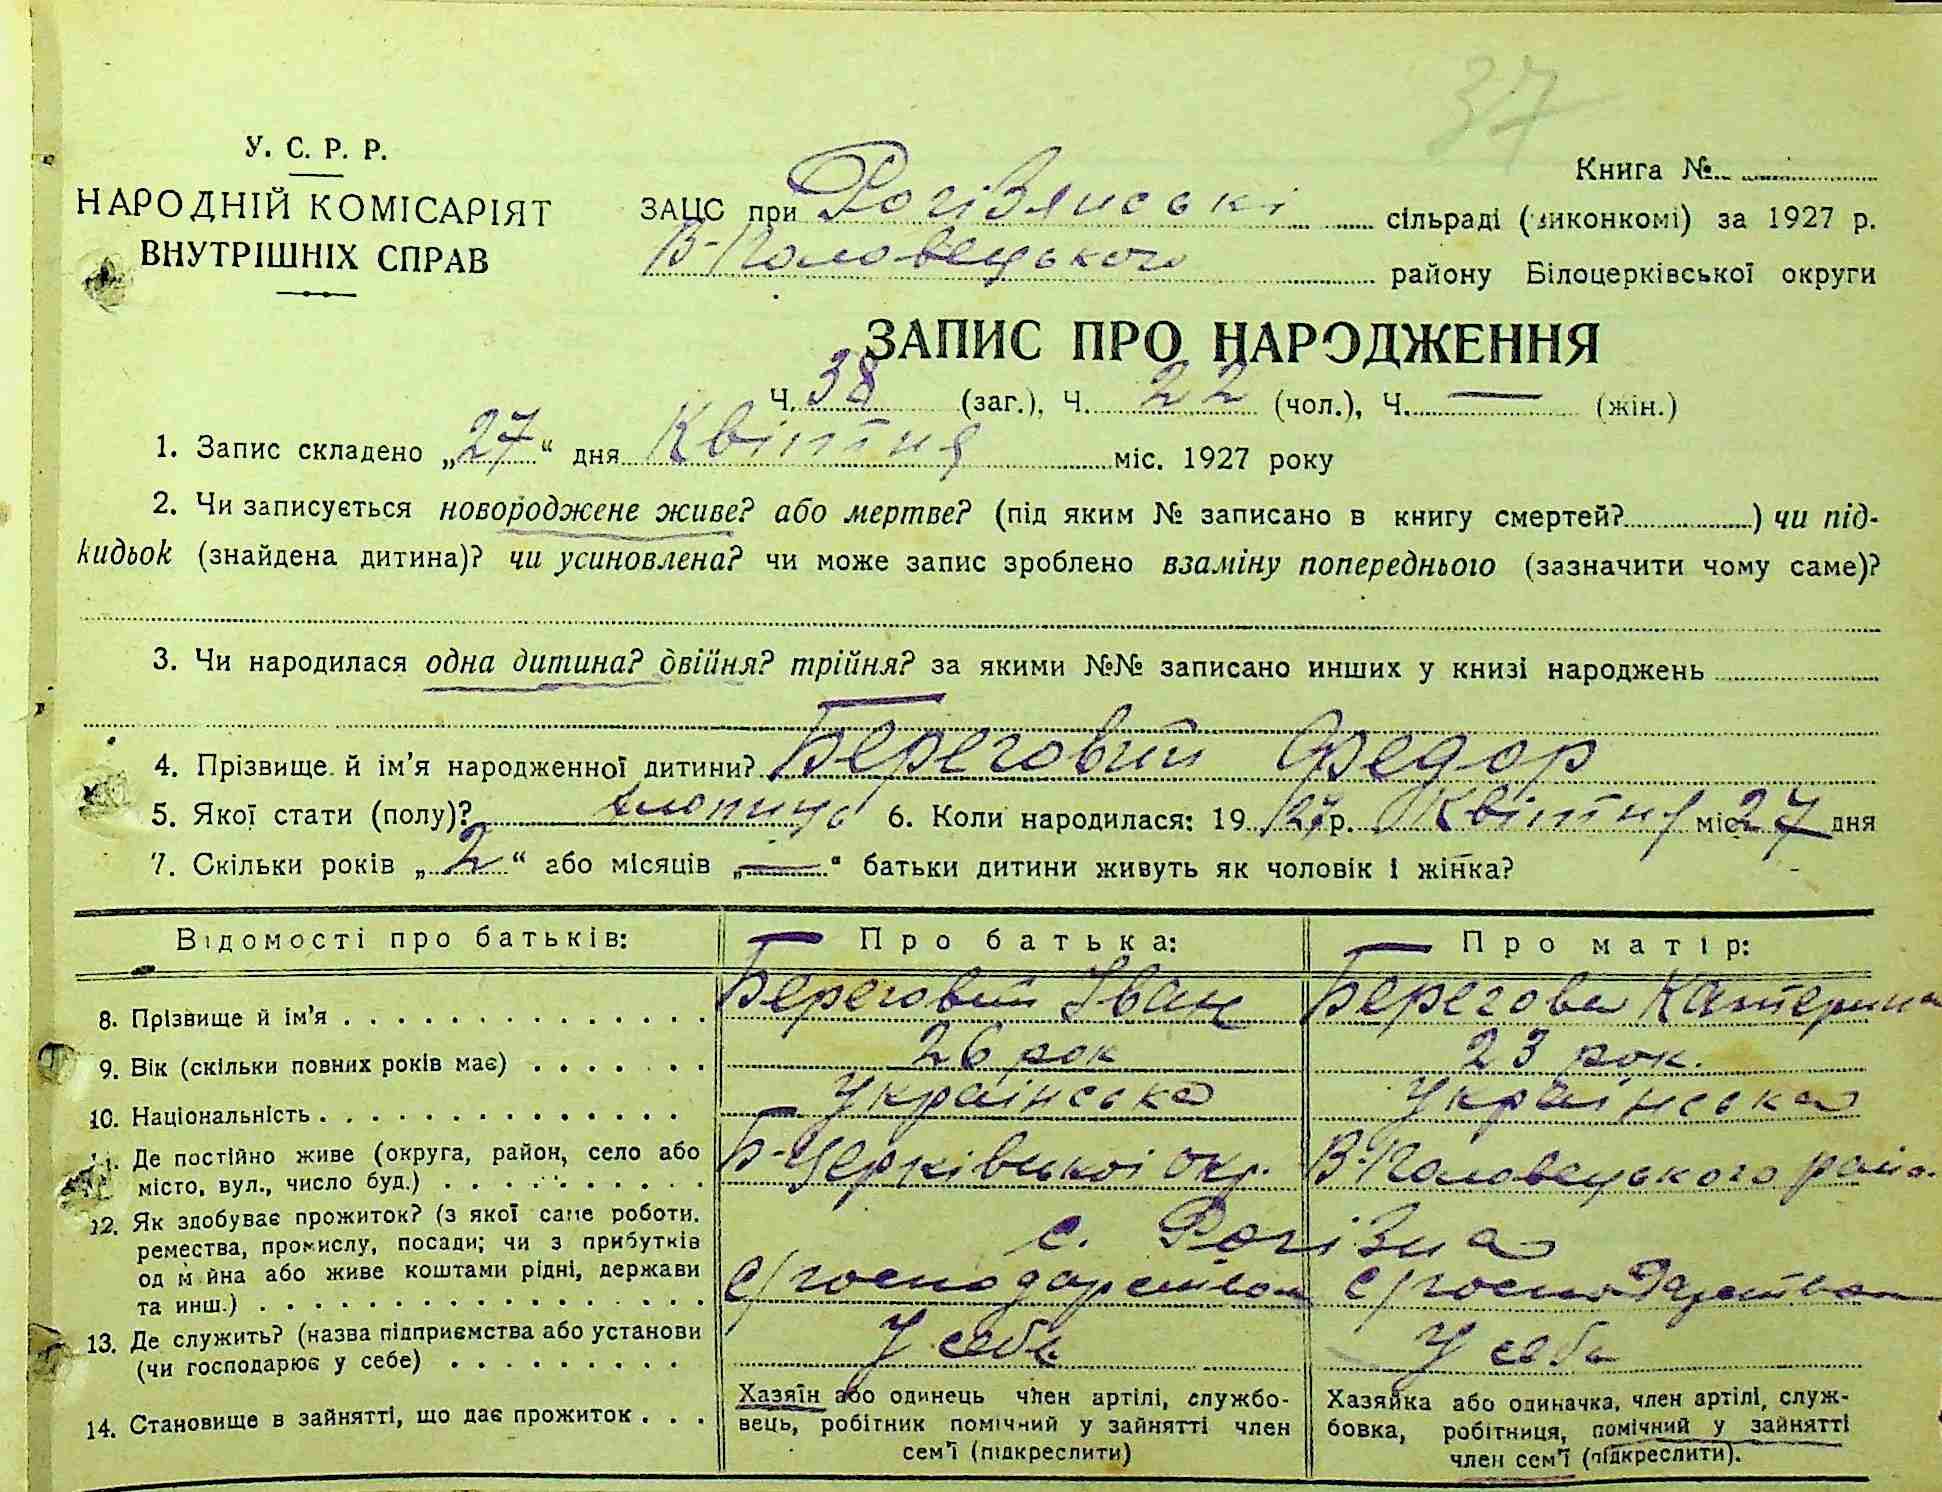 37
У. С. Р. Р.
НАРОДНІЙ КОМІСАРІЯТ
ВНУТРІШНІХ СПРАВ
Книга №
ЗАЦС при Рогізянські сільраді (виконкомі) за 1927 р.
В-Половецького району Білоцерківської округи
ЗАПИС ПРО НАРОДЖЕННЯ
Ч. 38 (заг.), Ч. 22 (чол.), Ч. — (жін.)
1. Запис складено „27“ дня Квітня міс. 1927 року
2. Чи записується новороджене живе? або мертве? (під яким № записано в книгу смертей? ) чи під-
кидьок (знайдена дитина)? чи усиновлена? чи може запис зроблено взаміну попереднього (зазначити чому саме)?
3. Чи народилася одна дитина? двійня? трійня? за якими №№ записано инших у книзі народжень
4. Прізвище й ім'я народженної дитини? Береговий Федор
5. Якої стати (полу)? хлопиць 6. Коли народилася: 1927 р. Квітня міс. 27 дня
7. Скільки років „2“ або місяців „—“ батьки дитини живуть як чоловік і жінка?
Відомості про батьків: Про батька: Про матір:
8. Прізвище й ім'я Береговий Іван Берегова Катерина
9. Вік (скільки повних років має) 26 рок 23 рок.
10. Національність Українська Українська
11. Де постійно живе (округа, район, село або
місто, вул., число буд.) Б-Церківської окр. В-Половецького райо.
с. Рогізна
12. Як здобуває прожиток? (з якої саме роботи,
ремества, промислу, посади; чи з прибутків
од майна або живе коштами рідні, держави
та инш.) С/господарством С/господарством
13. Де служить? (назва підприємства або установи
(чи господарює у себе) У себе У себе
14. Становище в зайнятті, що дає прожиток
Хазяїн або одинець член артілі, службо-
вець, робітник помічний у зайнятті член
сем'ї (підкреслити)
Хазяйка або одиначка, член артілі, служ-
бовка, робітниця, помічний у зайнятті
член сем'ї (підкреслити).